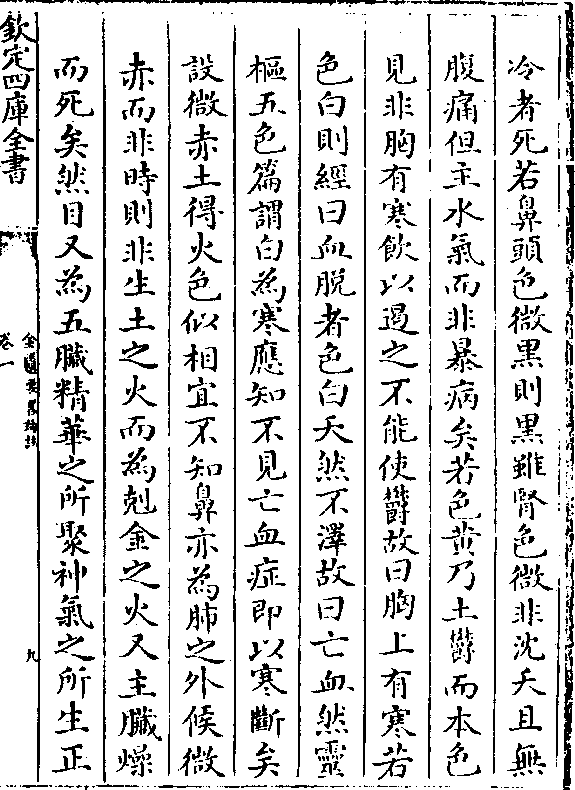 冷者死若鼻頭色微黒則黒雖腎色微非沈夭且無
腹痛但主水氣而非暴病矣若色黄乃土鬱而本色
見非胸有寒飲以遏之不能使鬱故曰胸上有寒若
色白則經曰血脱者色白夭然不澤故曰亡血然靈
樞五色篇謂白為寒應知不見亡血症即以寒斷矣
設微赤土得火色似相宜不知鼻亦為肺之外候微
赤而非時則非生土之火而為剋金之火又主臟燥
而死矣然目又為五臟精華之所聚神氣之所生正
欽定四庫全書
金匱要畧論註
卷一
九